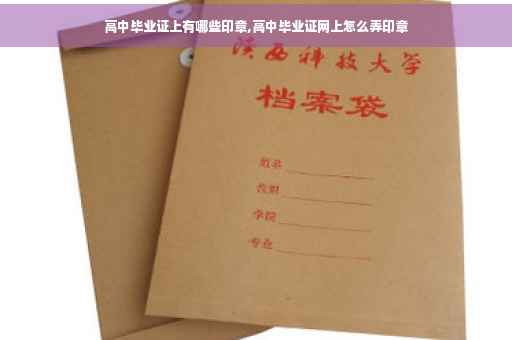 高中毕业证上有哪些印章,高中毕业证网上怎么弄印章
陕西科技大学
档案袋
姓名
教职
学院
专业